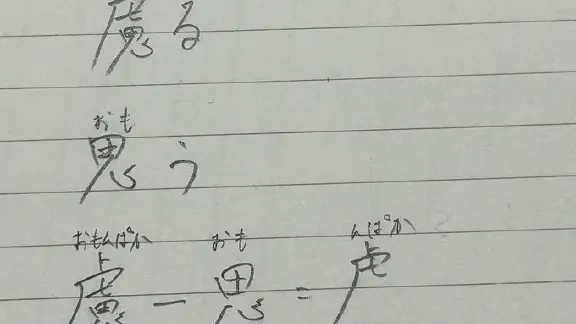 慮る
おも
思う
おもんぱか おも んぱか
慮 − 思 = 虍